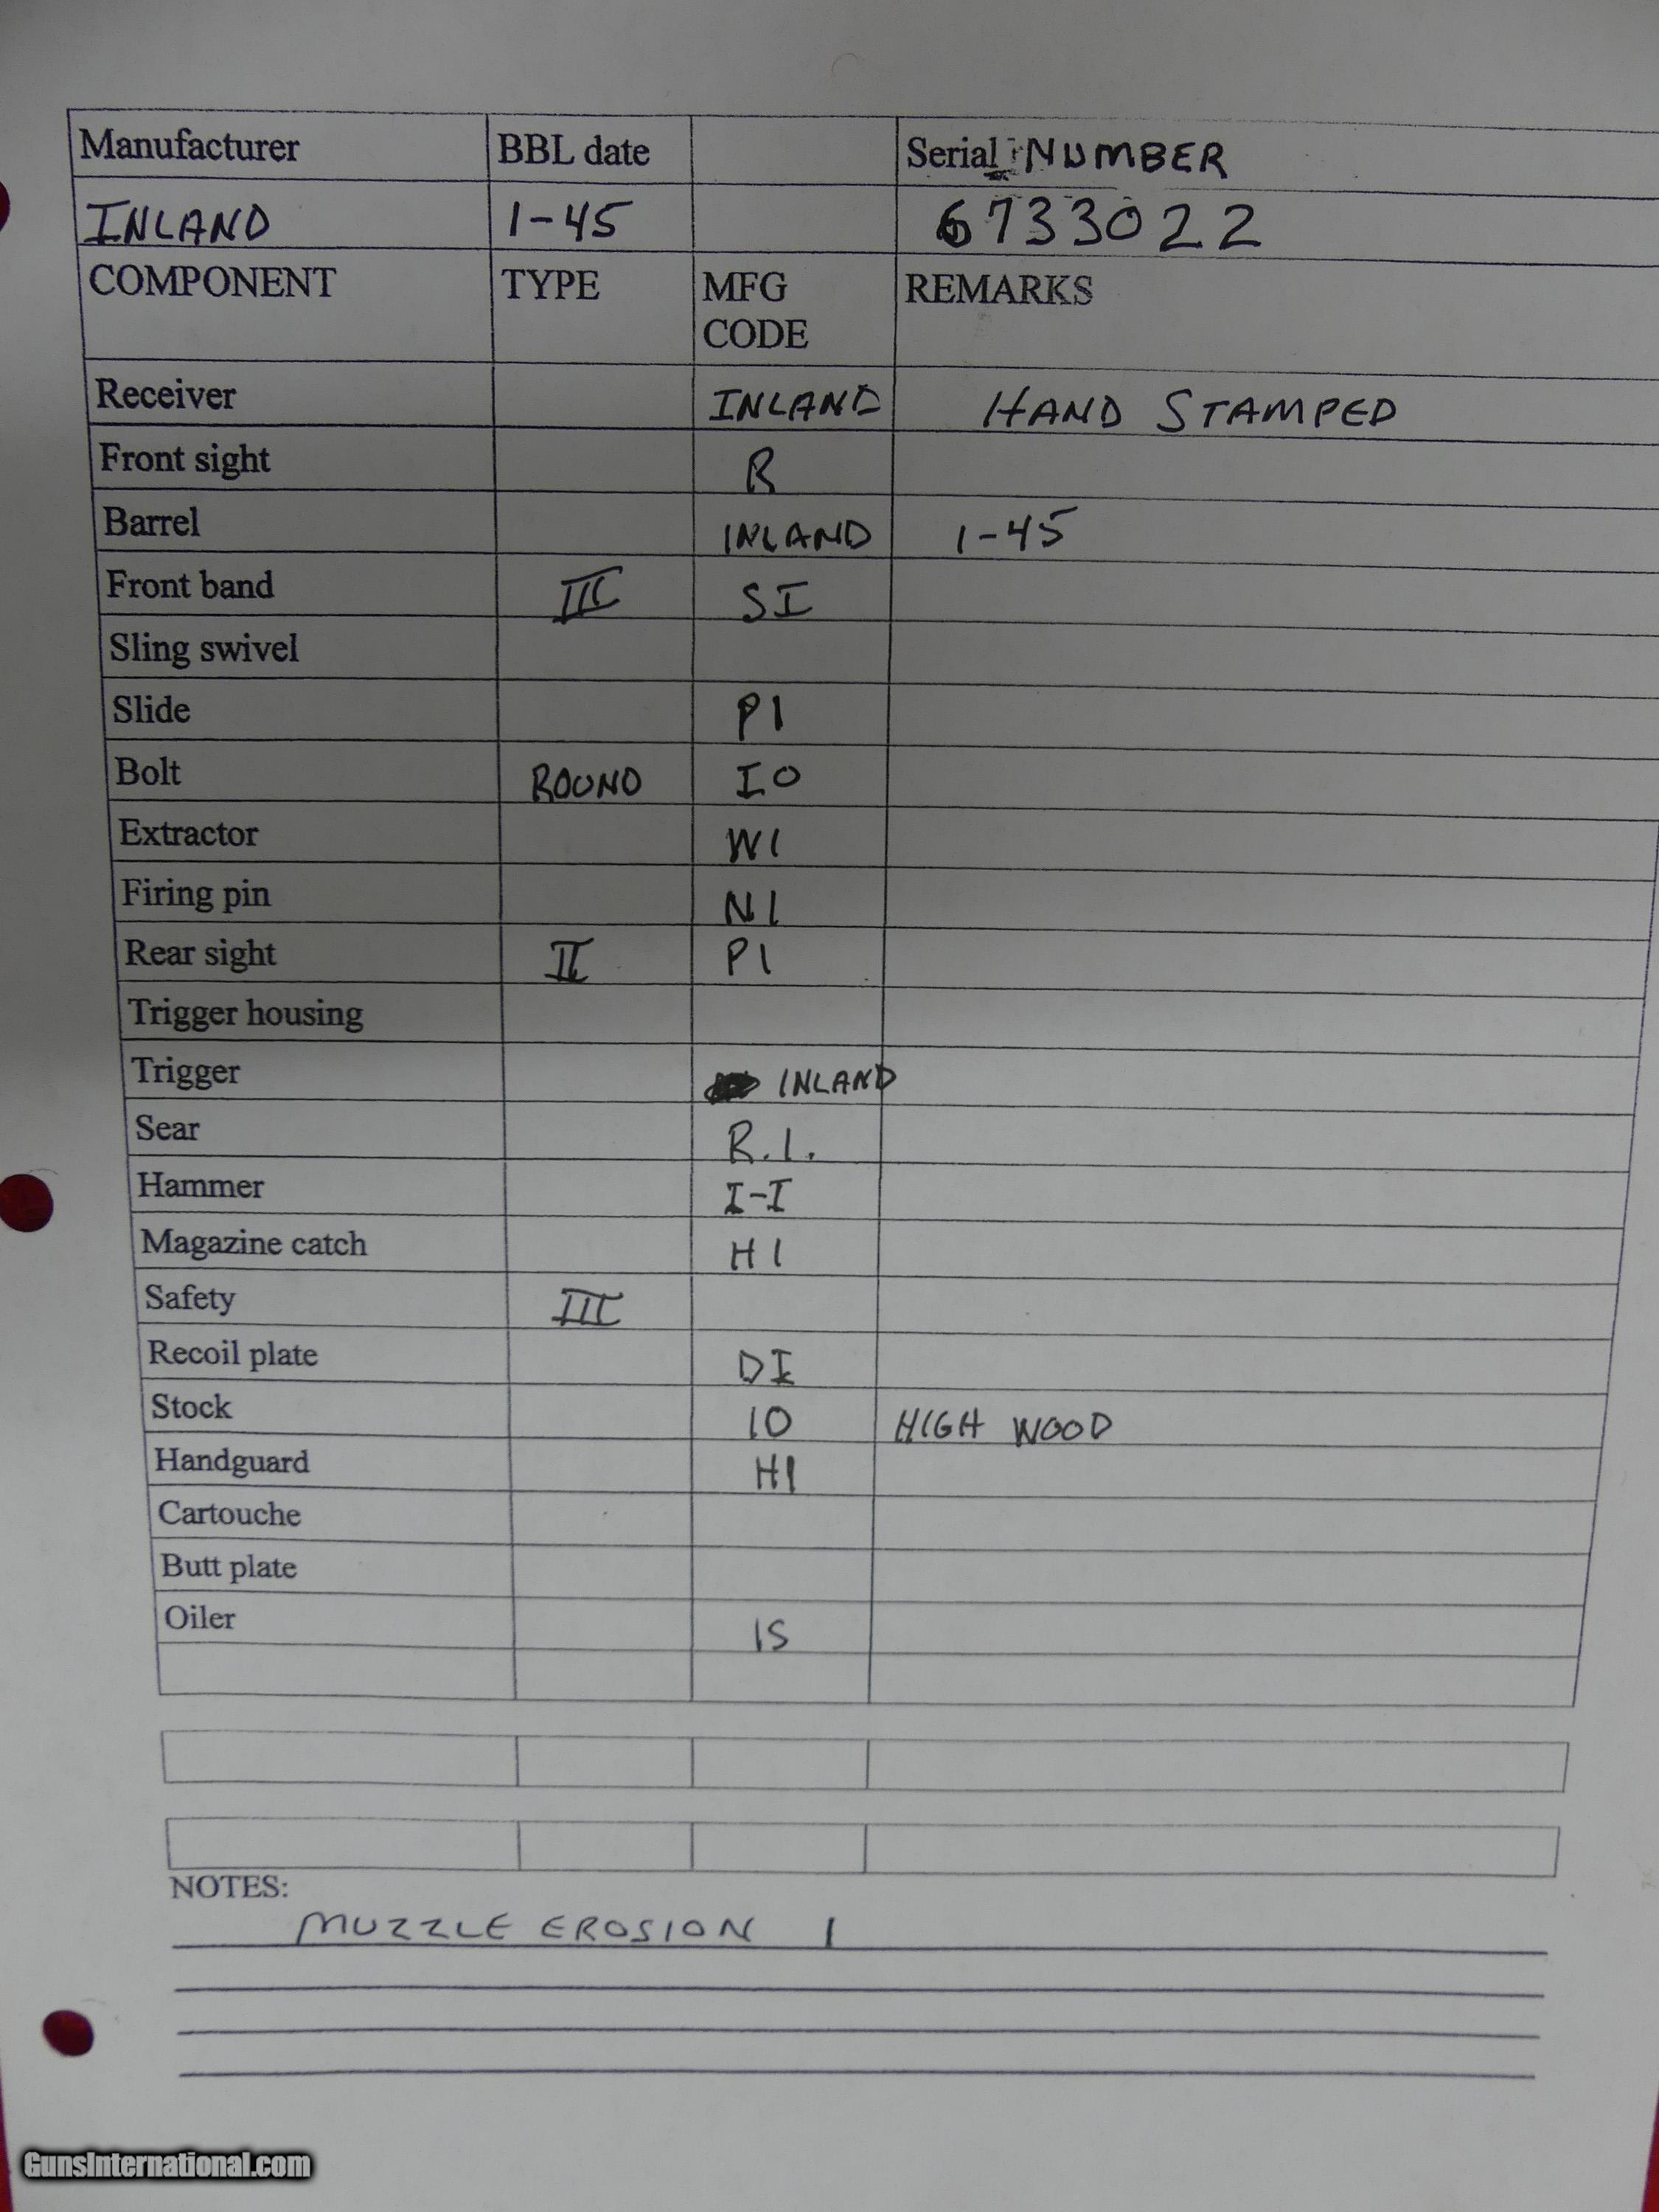 Manufacturer BBL date Serial NUMBER
INLAND 1-45 6733022
COMPONENT TYPE MFG CODE REMARKS
Receiver INLAND HAND STAMPED
Front sight R
Barrel INLAND 1-45
Front band III SI
Sling swivel
Slide PI
Bolt ROUND IO
Extractor WI
Firing pin NI
Rear sight II PI
Trigger housing
Trigger INLAND
Sear R.I.
Hammer I-I
Magazine catch HI
Safety III
Recoil plate DI
Stock IO HIGH WOOD
Handguard HI
Cartouche
Butt plate
Oiler IS
NOTES:
MUZZLE EROSION 1
GunsInternational.com